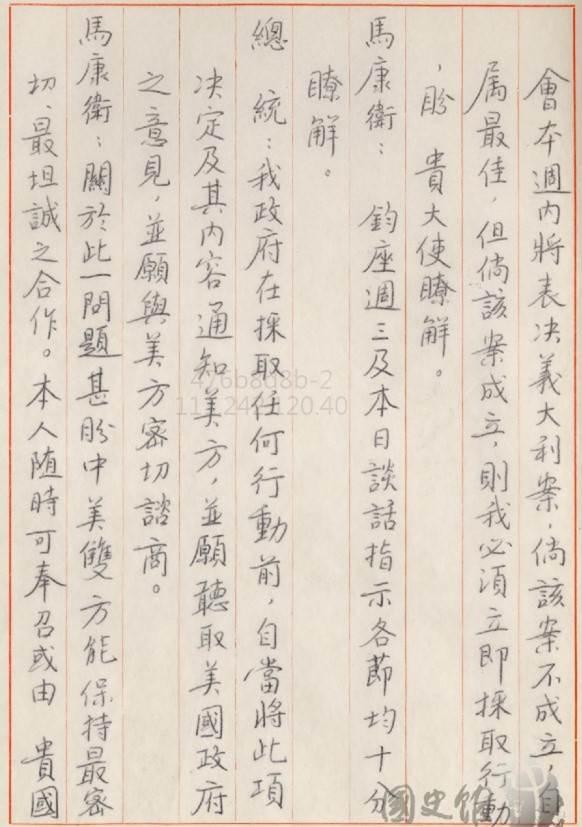 會本週內將表決義大利案，倘該案不成立，自
属最佳，但倘該案成立，則我必須立即採取行動
，盼　貴大使瞭解。
馬康衛：　鈞座週三及本日談話指示各節均十分
瞭解。
總　統：我政府在採取任何行動前，自當將此項
決定及其內容通知美方，並願聽取美國政府
之意見，並願與美方密切諮商。
馬康衛：關於此一問題甚盼中美雙方能保持最密
切、最坦誠之合作。本人隨時可奉召或由　貴國
476b8d8b-2
國史館